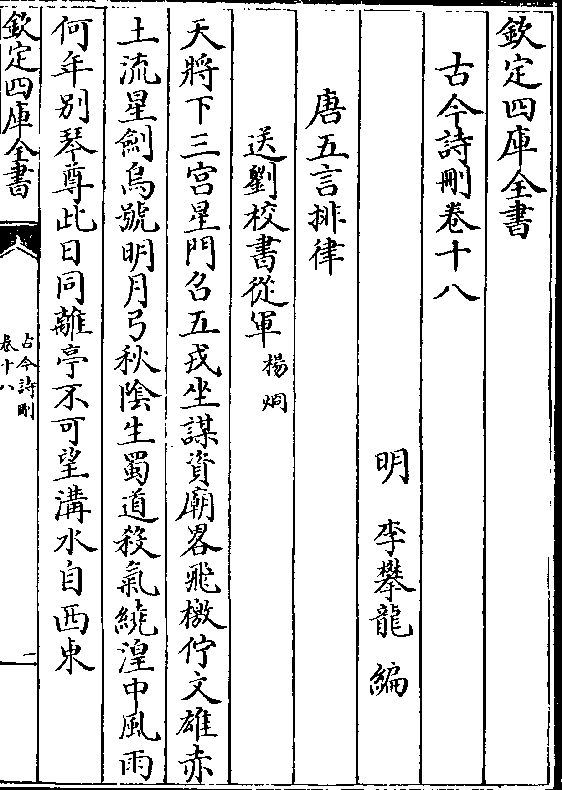 欽定四庫全書
古今詩刪卷十八
明 李攀龍 編
唐五言排律
送劉校書從軍 楊炯
天將下三宫星門召五戎坐謀資廟畧飛檄佇文雄赤
土流星劍烏號明月弓秋陰生蜀道殺氣繞湟中風雨
何年別琴尊此日同離亭不可望溝水自西東
欽定四庫全書
古今詩刪
卷十八
一